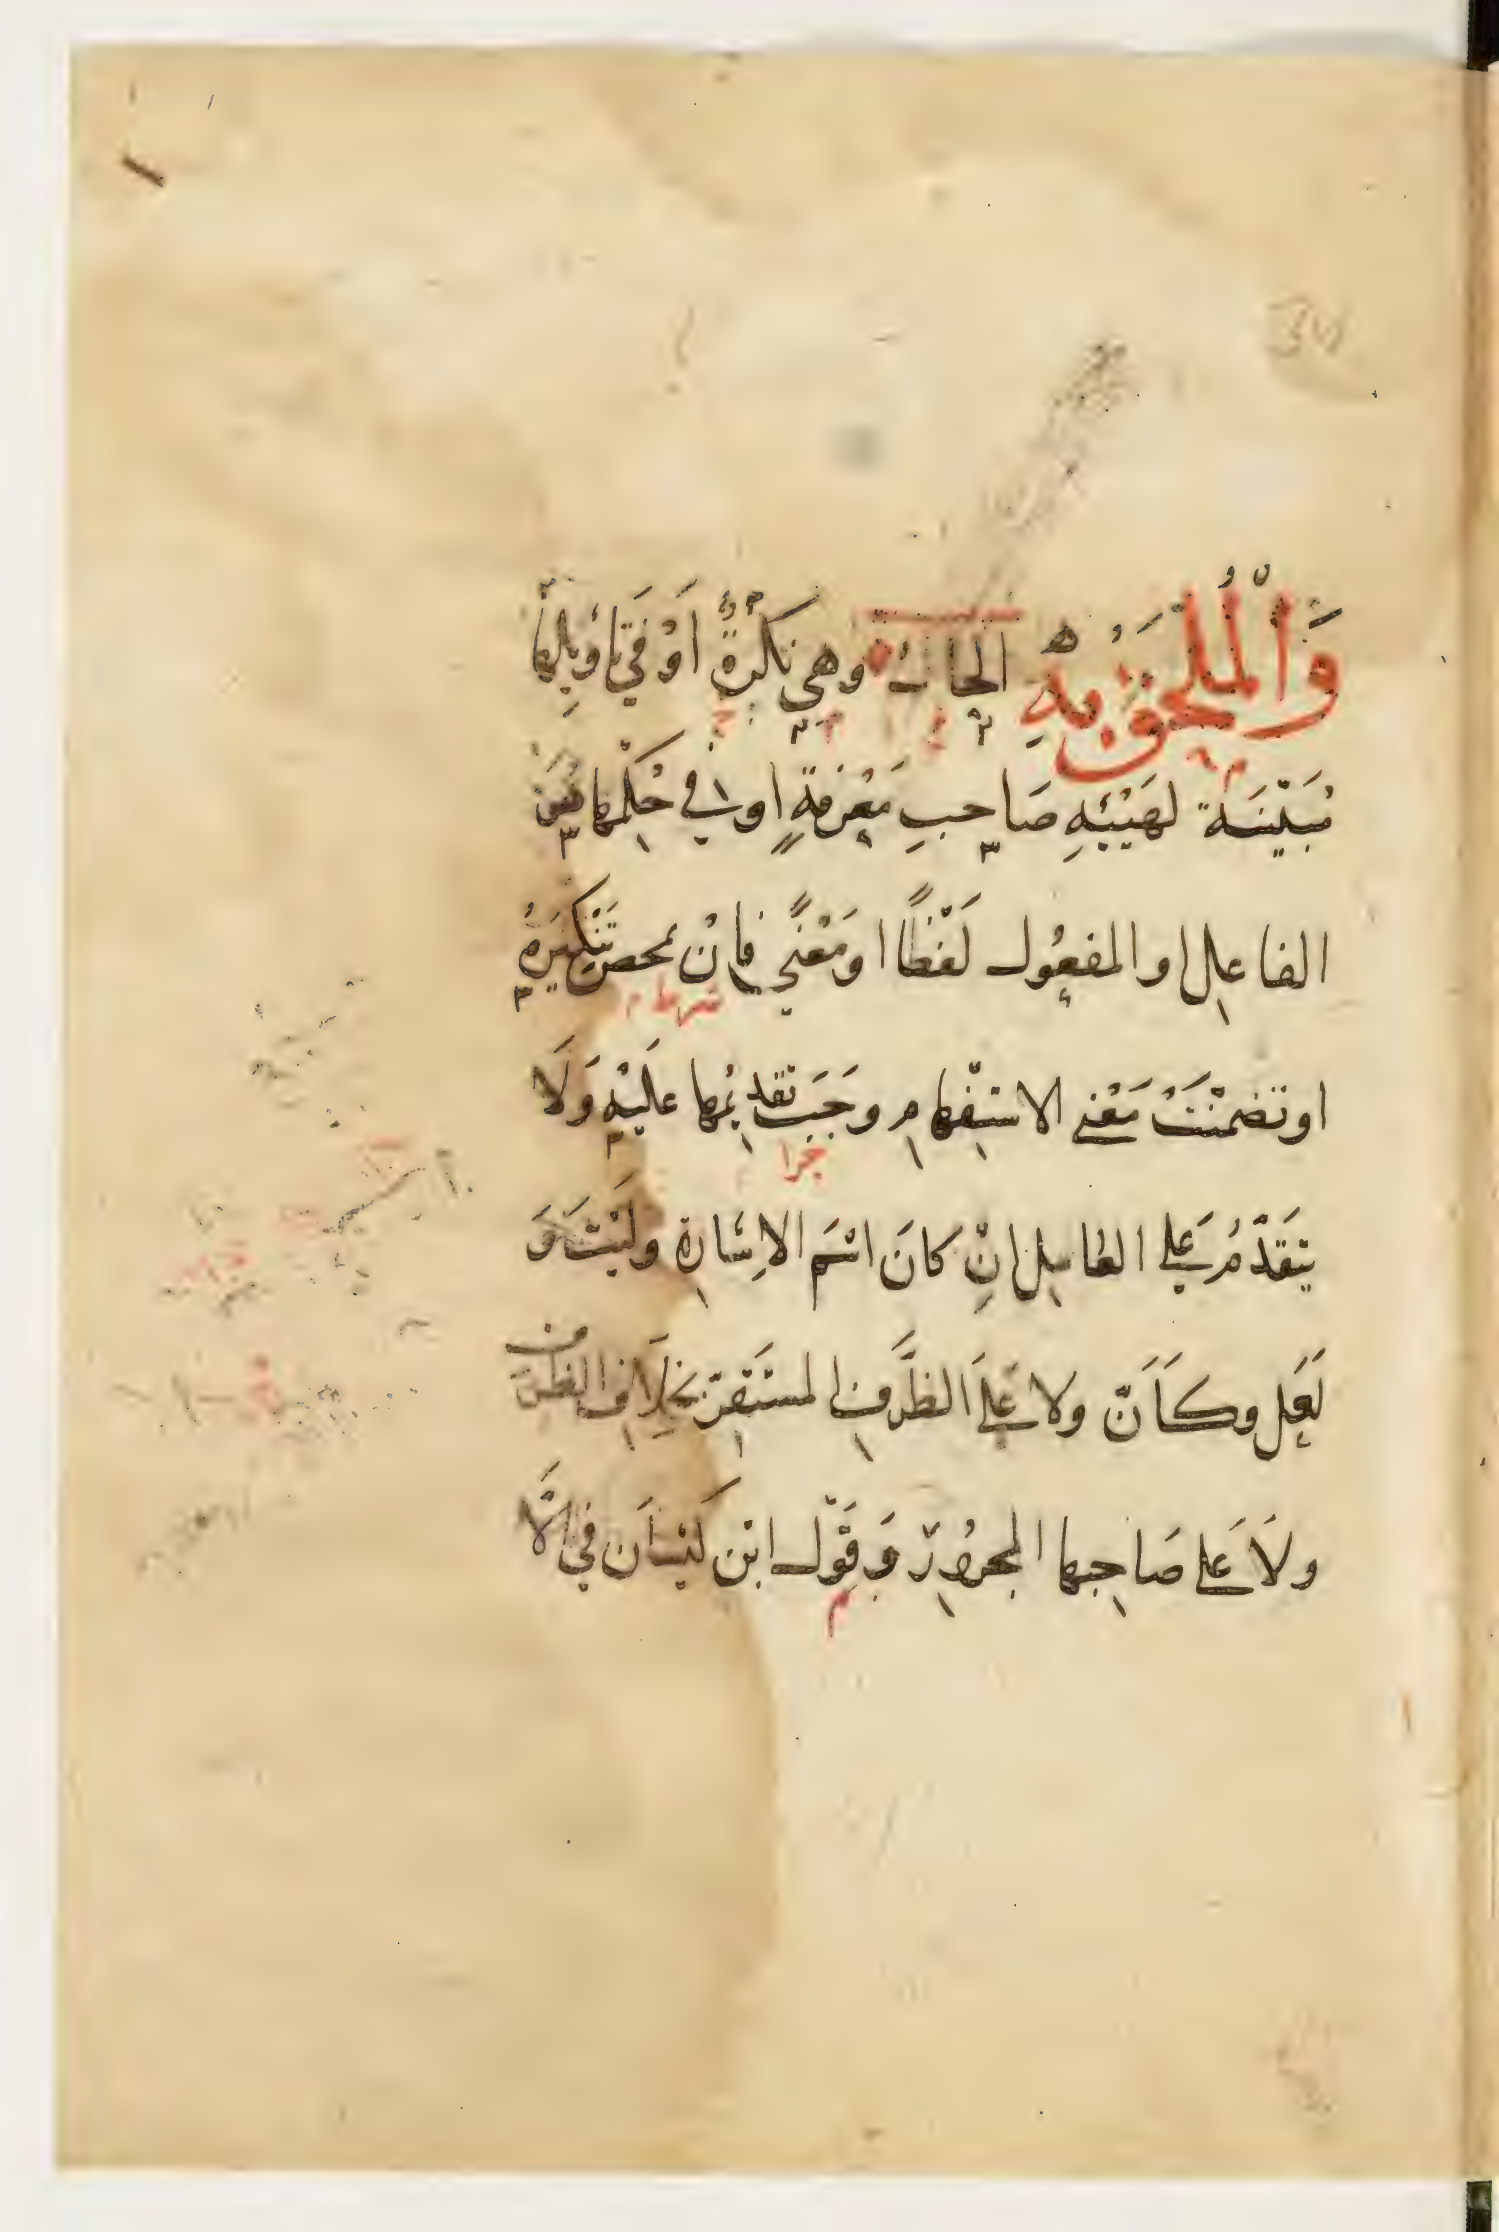 وَالْمُلْحَقُ بِهِ الحال وهي نكرةٌ اَوْ في تَأويلِها
مُبَيِّنَة لِهَيْئَةِ صَاحبٍ مَعْرفةٍ او في حُكْمِها مِنَ
الفاعل او المفعُول لَفْظًا او مَعْنًى فإنْ تمحض تَنْكِيرُهُ
شرط م
او تضمنَتْ مَعْنى الاستفْهام وجَبَ تقديمُها عليْهِ وَلَا
جزا
يتَقَدَّمُ عَلى العامل انْ كانَ اسْمَ الاِشَارة وليْتَ وَ
لَعَل وكَاَنَّ ولا عَلَى الظَّرف المستَقِرّ بخِلَافِ الظرف
ولَا عَلى صَاحِبها المجرُورْ وَقَوْل ابْن كَيْسَان في الَّا